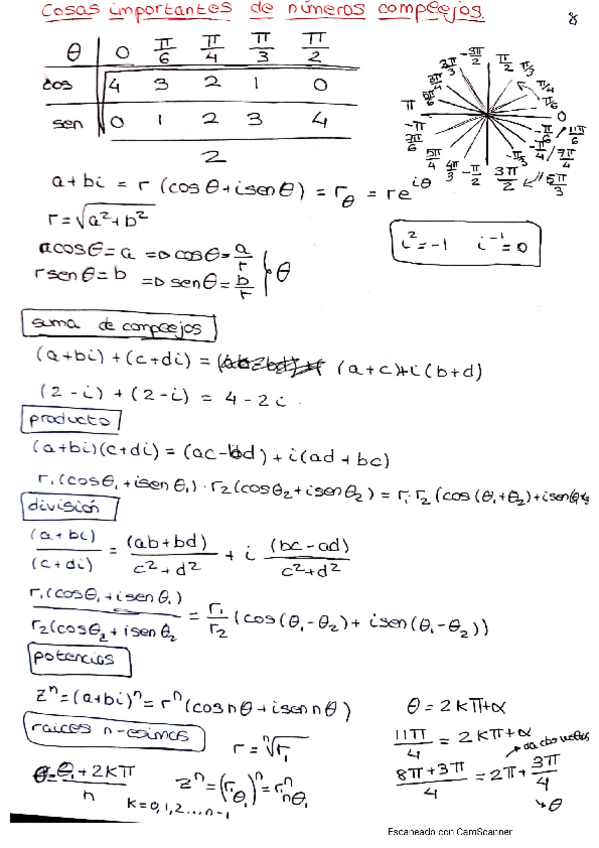 Cosas importantes de números complejos. 8
θ 0 π/6 π/4 π/3 π/2
cos √4 3 2 1 0
sen 0 1 2 3 4
2
π/2 π/3 π/4 π/6 0
π -π
3π/2 5π/3 7π/4 11π/6
5π/4 4π/3 -π/2 -π/3 -π/4 -π/6
a+bi = r (cos θ + i sen θ) = r_θ = re^{iθ}
r = √(a²+b²)
i² = -1 i⁻¹ = 0
a cos θ = a => cos θ = a/r
r sen θ = b => sen θ = b/r } θ
suma de complejos
(a+bi) + (c+di) = (a+c)+i(b+d)
(2-i) + (2-i) = 4-2i
producto
(a+bi)(c+di) = (ac-bd) + i(ad+bc)
r₁(cosθ₁+isenθ₁)·r₂(cosθ₂+isenθ₂) = r₁·r₂(cos(θ₁+θ₂)+isen(θ₁
división
(a+bi)/(c+di) = (ab+bd)/(c²+d²) + i (bc-ad)/(c²+d²)
r₁(cosθ₁+isenθ₁)/r₂(cosθ₂+isenθ₂ = r₁/r₂ (cos(θ₁-θ₂)+isen(θ₁-θ₂))
potencias
zⁿ = (a+bi)ⁿ = rⁿ(cos nθ + isen nθ) θ = 2kπ+α
raíces n-esimas r = ⁿ√r₁ 11π/4 = 2kπ+α
θ = (θ₁+2kπ)/n zⁿ = (r_θ₁)ⁿ = rⁿ_nθ₁ (8π+3π)/4 = 2π + 3π/4
k=0,1,2...n-1 θ
Escaneado con CamScanner